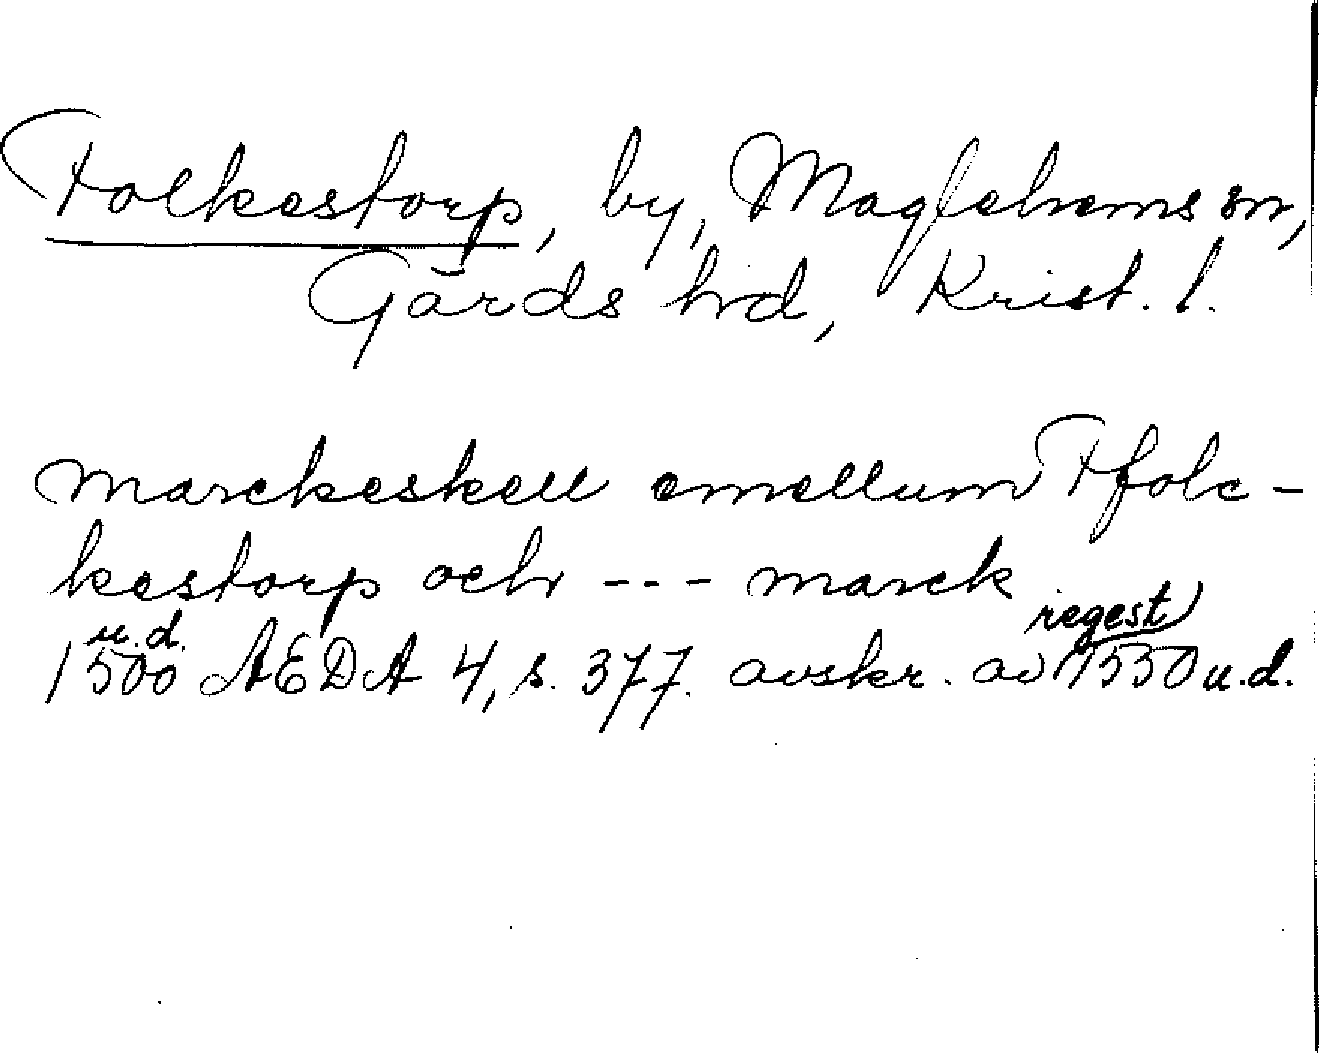 Folkestorp, by, Maglehems sn,
Gärds hd, Krist. l.
marckeskell emellum Ffolc-
kestorp och --- marck
u.d. regest
1500 AEDA 4, s. 377. avskr. av 1550 u.d.